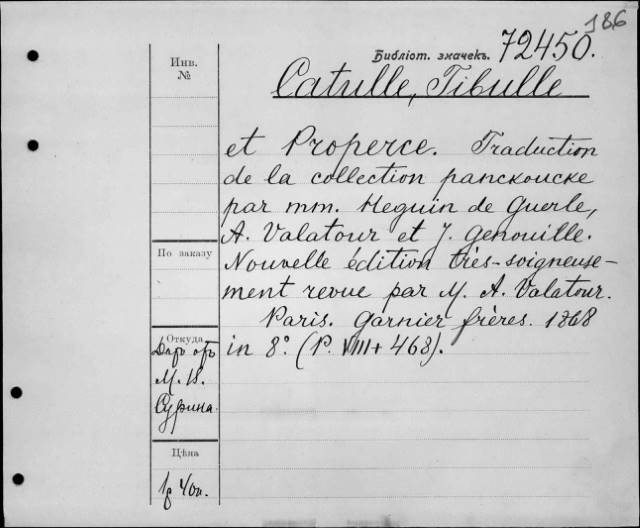 186
Библіот. значекъ. 72450.
Инв.
№
Catulle, Tibulle
et Properce. Traduction
de la collection panckoucke
par mm. Heguin de Guerle,
A. Valatour et J. Genouille.
По заказу
Nouvelle édition très-soigneuse-
ment revue par M. A. Valatour.
Paris. Garnier frères. 1868
in 8º. (P. VIII + 468).
Откуда
Даръ отъ
М. В.
Сурина.
Цѣна
1р 40к.